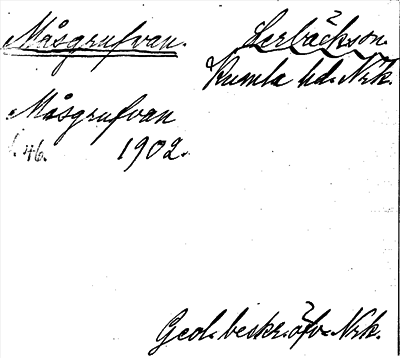 Måsgrufvan. Lerbäckson.
Kumla hd. Nrk.
Måsgrufvan
46. 1902.
Geol. beskr. öfv. Nrk.